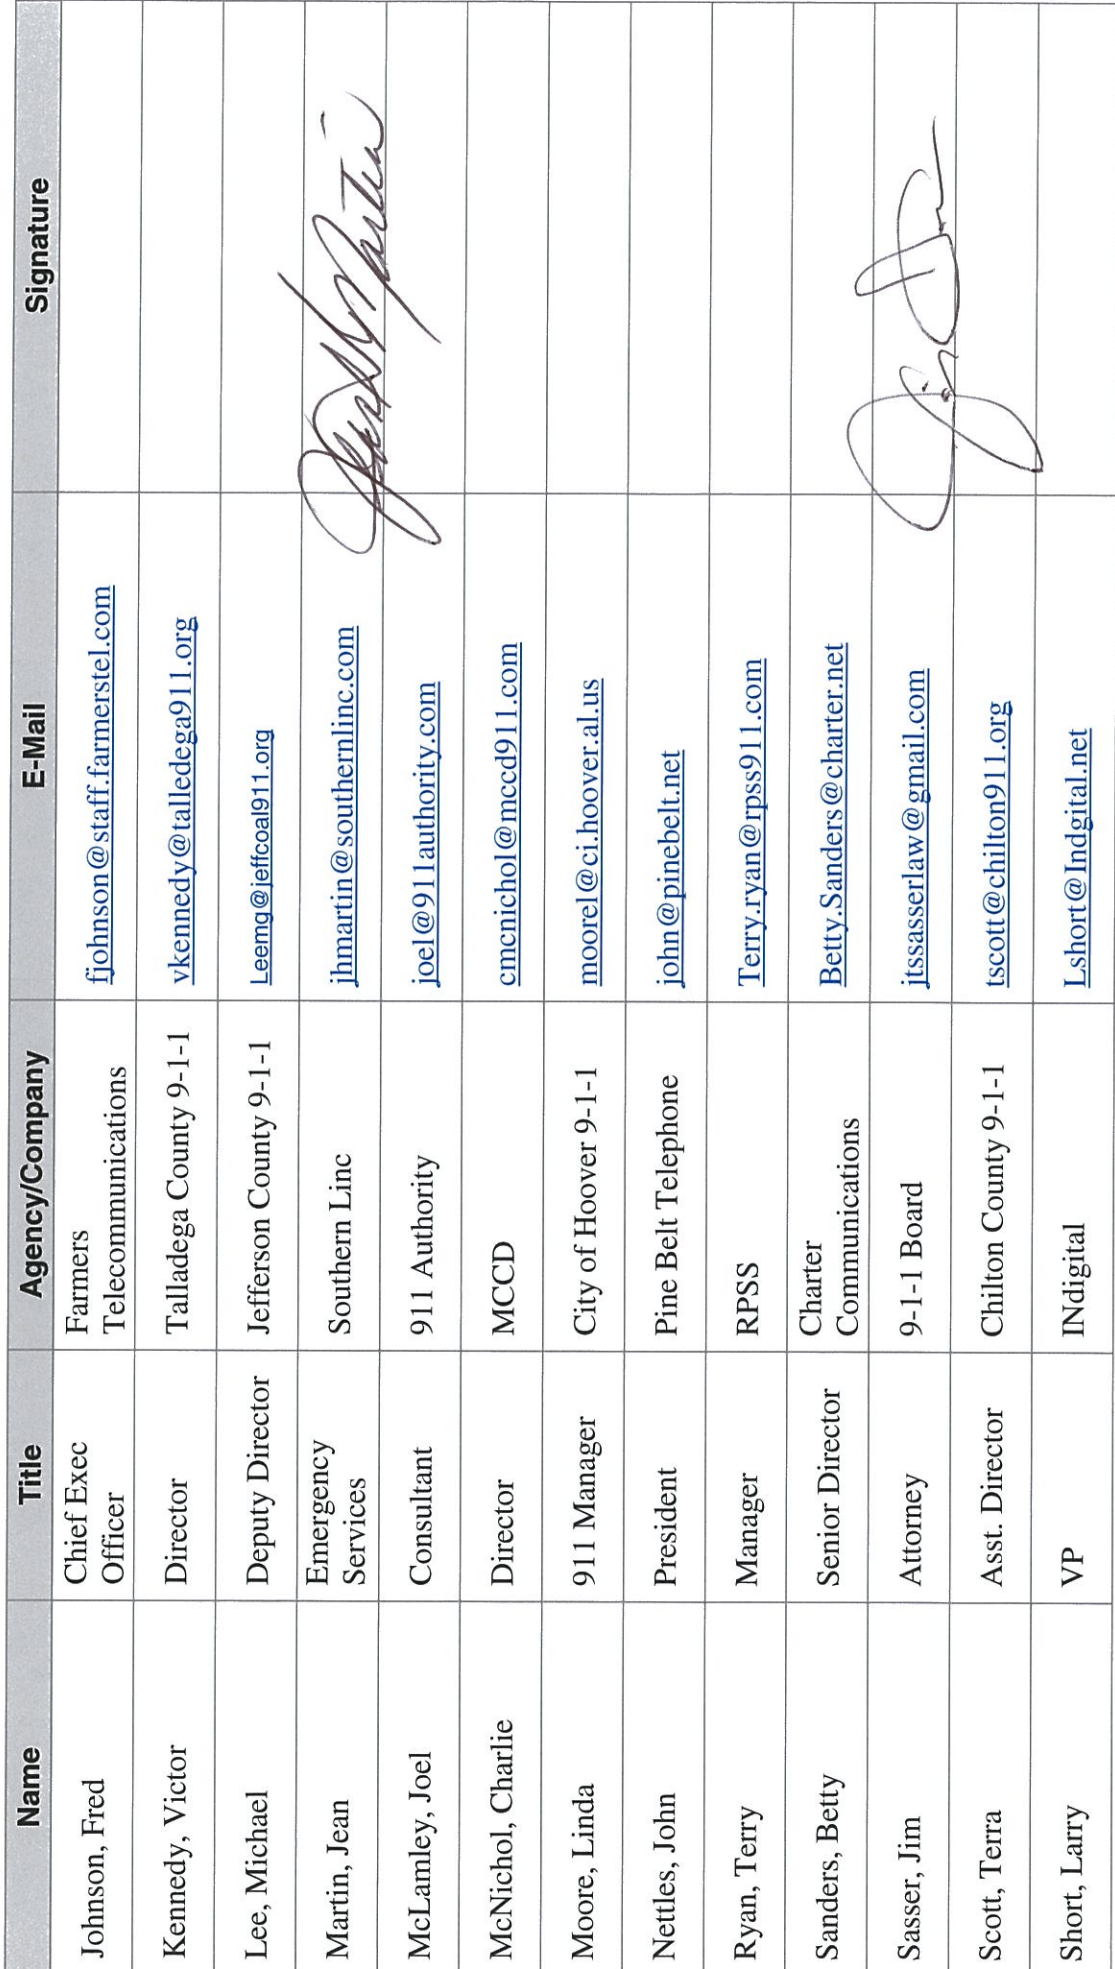 Name Title Agency/Company E-Mail Signature
Johnson, Fred Chief Exec Officer Farmers Telecommunications fjohnson@staff.farmerstel.com
Kennedy, Victor Director Talladega County 9-1-1 vkennedy@talledega911.org
Lee, Michael Deputy Director Jefferson County 9-1-1 Leemg@jeffcoal911.org
Martin, Jean Emergency Services Southern Linc jhmartin@southernlinc.com
McLamley, Joel Consultant 911 Authority joel@911authority.com
McNichol, Charlie Director MCCD cmcnichol@mccd911.com
Moore, Linda 911 Manager City of Hoover 9-1-1 moorel@ci.hoover.al.us
Nettles, John President Pine Belt Telephone john@pinebelt.net
Ryan, Terry Manager RPSS Terry.ryan@rpss911.com
Sanders, Betty Senior Director Charter Communications Betty.Sanders@charter.net
Sasser, Jim Attorney 9-1-1 Board jtssasserlaw@gmail.com
Scott, Terra Asst. Director Chilton County 9-1-1 tscott@chilton911.org
Short, Larry VP INdigital Lshort@Indgital.net